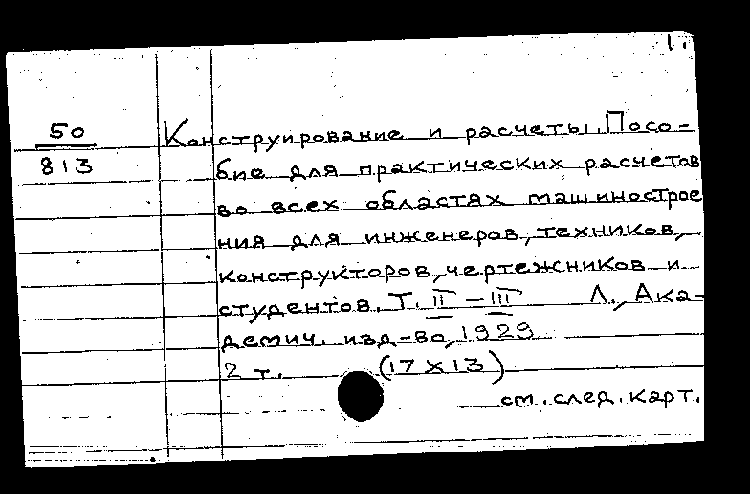 1.
50
813
Конструирование и расчеты. Посо-
бие для практических расчетов
во всех областях машиностроe
ния для инженеров, техников,
конструкторов, чертежников и
студентов. Т. II – III Л., Ака-
демич. изд-во, 1929
2 т. (17 х 13)
см. след. карт.